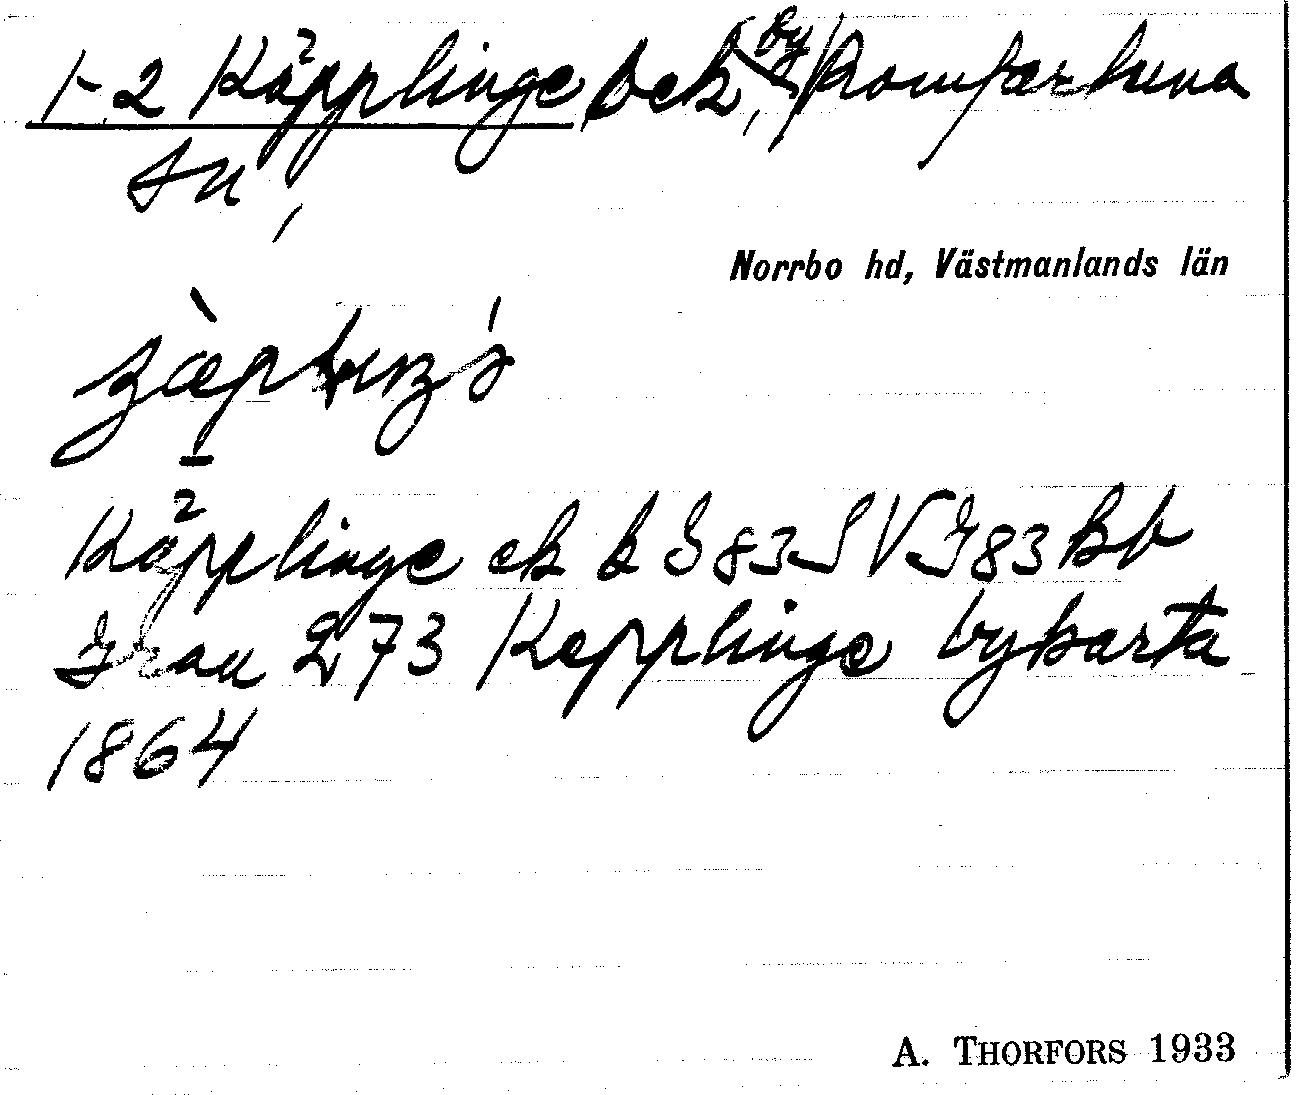 1-2 Käpplinge bek, by Romfartuna
sn,
Norrbo hd, Västmanlands län
Käpplinge ek bl G 83 SV J 83 Bb
Gran 273 Kepplinge bykarta
1864
A. THORFORS 1933